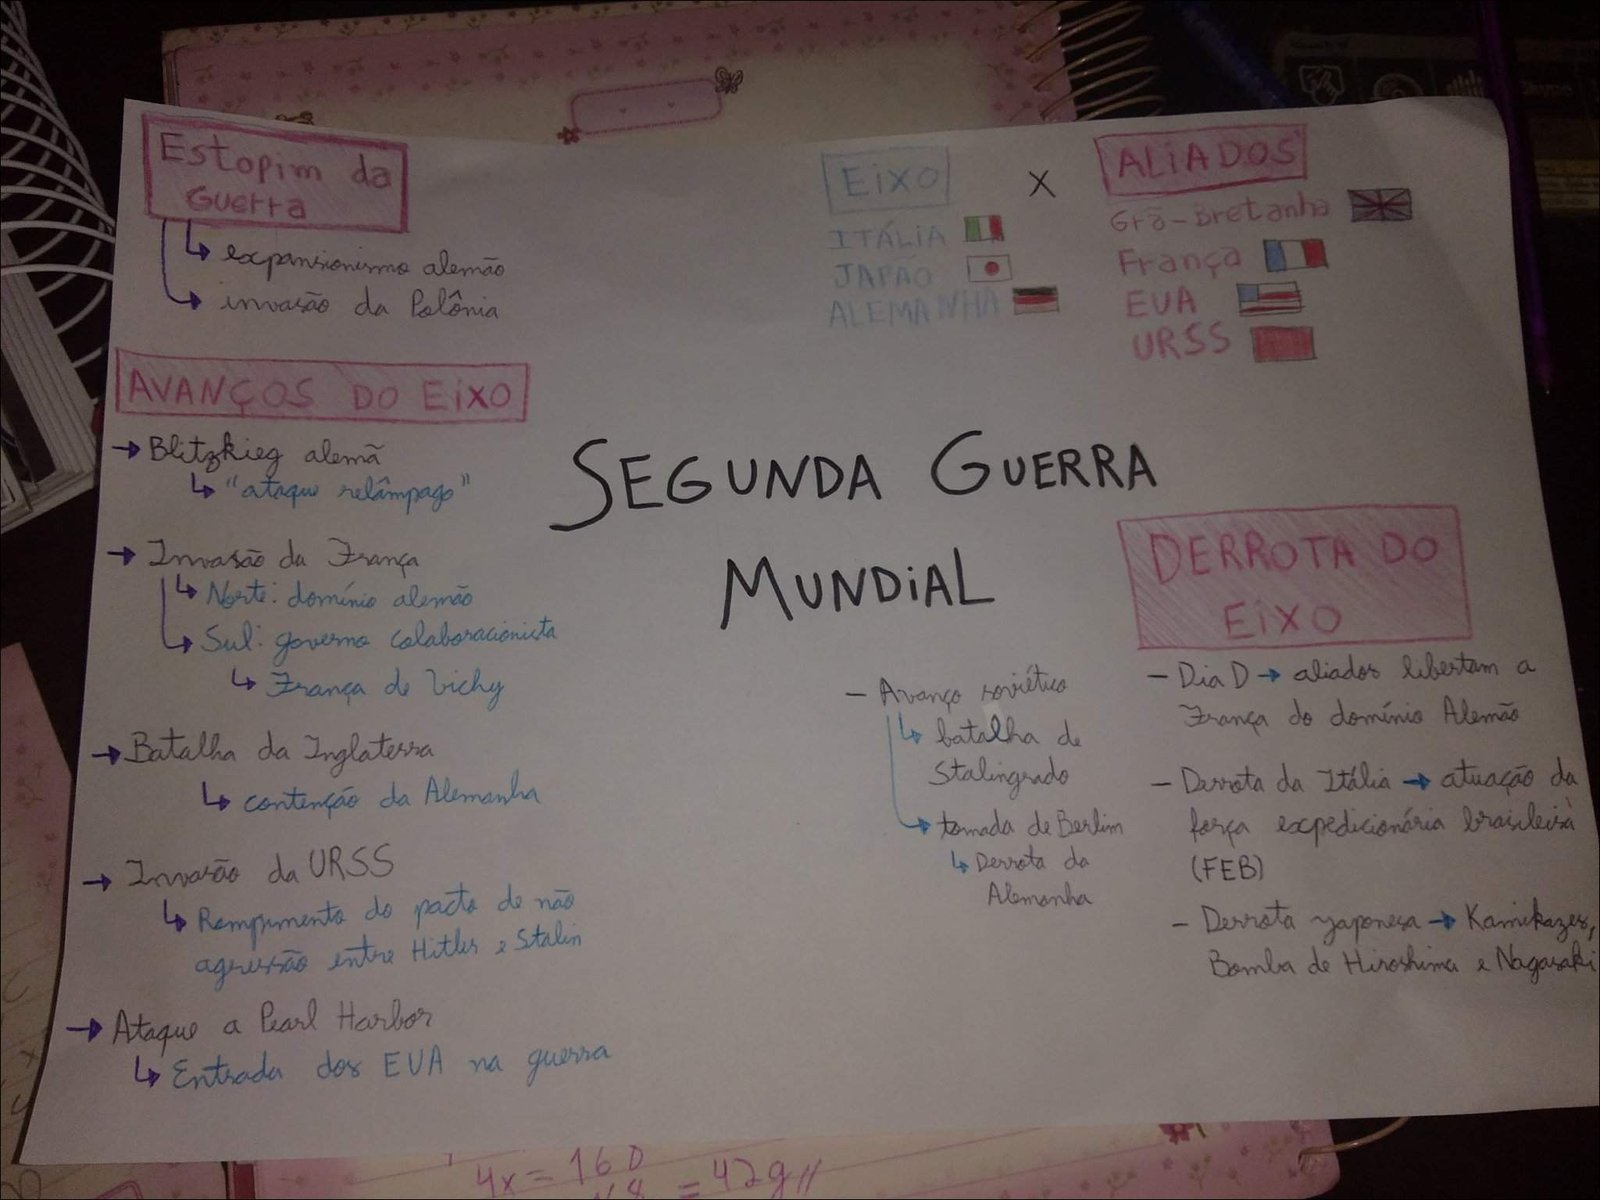 Estopim da
Guerra
expansionismo alemão
invasão da Polônia
EIXO X ALIADOS
ITÁLIA
JAPÃO
ALEMANHA
Grã-Bretanha
França
EUA
URSS
AVANÇOS DO EIXO
Blitzkieg alemã
"ataque relâmpago"
Invasão da França
Norte: domínio alemão
Sul: governo colaboracionista
França de Vichy
Batalha da Inglaterra
contenção da Alemanha
Invasão da URSS
Rompimento do pacto de não
agressão entre Hitler e Stalin
Ataque a Pearl Harbor
Entrada dos EUA na guerra
SEGUNDA GUERRA
MUNDIAL
DERROTA DO
EIXO
- Avanço soviético
batalha de
Stalingrado
tomada de Berlim
Derrota da
Alemanha
- Dia D → aliados libertam a
França do domínio Alemão
- Derrota da Itália → atuação da
força expedicionária brasileira
(FEB)
- Derrota japonesa → Kamikazes,
Bomba de Hiroshima e Nagasaki
4x = 160
= 42g//